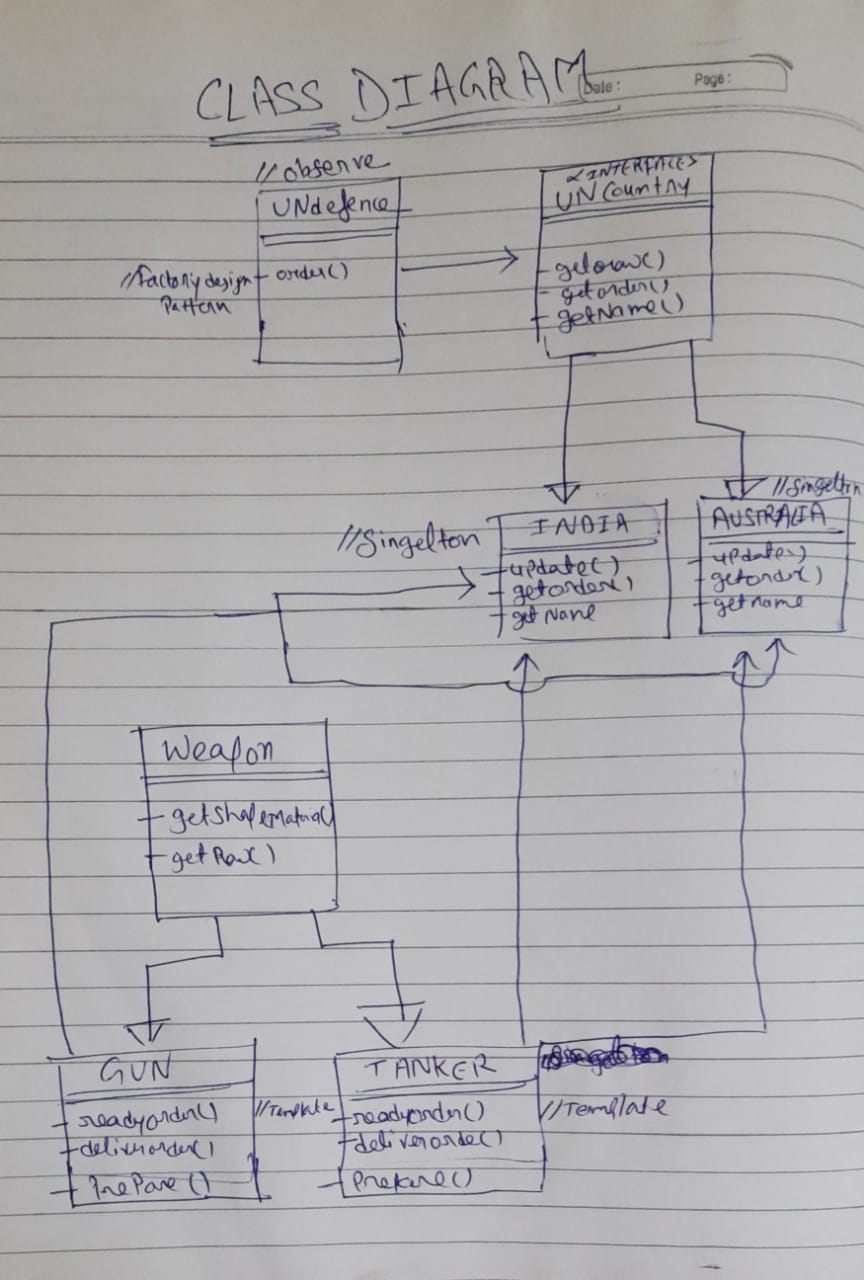 CLASS DIAGRAM
Date :
Page :
//observe
UNdefence
//Factory design
Pattern
order()
<INTERFACES>
UNCountry
getoraw()
getorder()
getName()
//Singelton
INDIA
update()
getorder()
get Name
//Singeltn
AUSTRALIA
update()
getorder()
getname
Weapon
getShapeMatrial()
getRaw()
GUN
readyorder()
deliverorder()
PrePare()
//Template
TANKER
readyorder()
deliverorde()
Prepare()
//Template